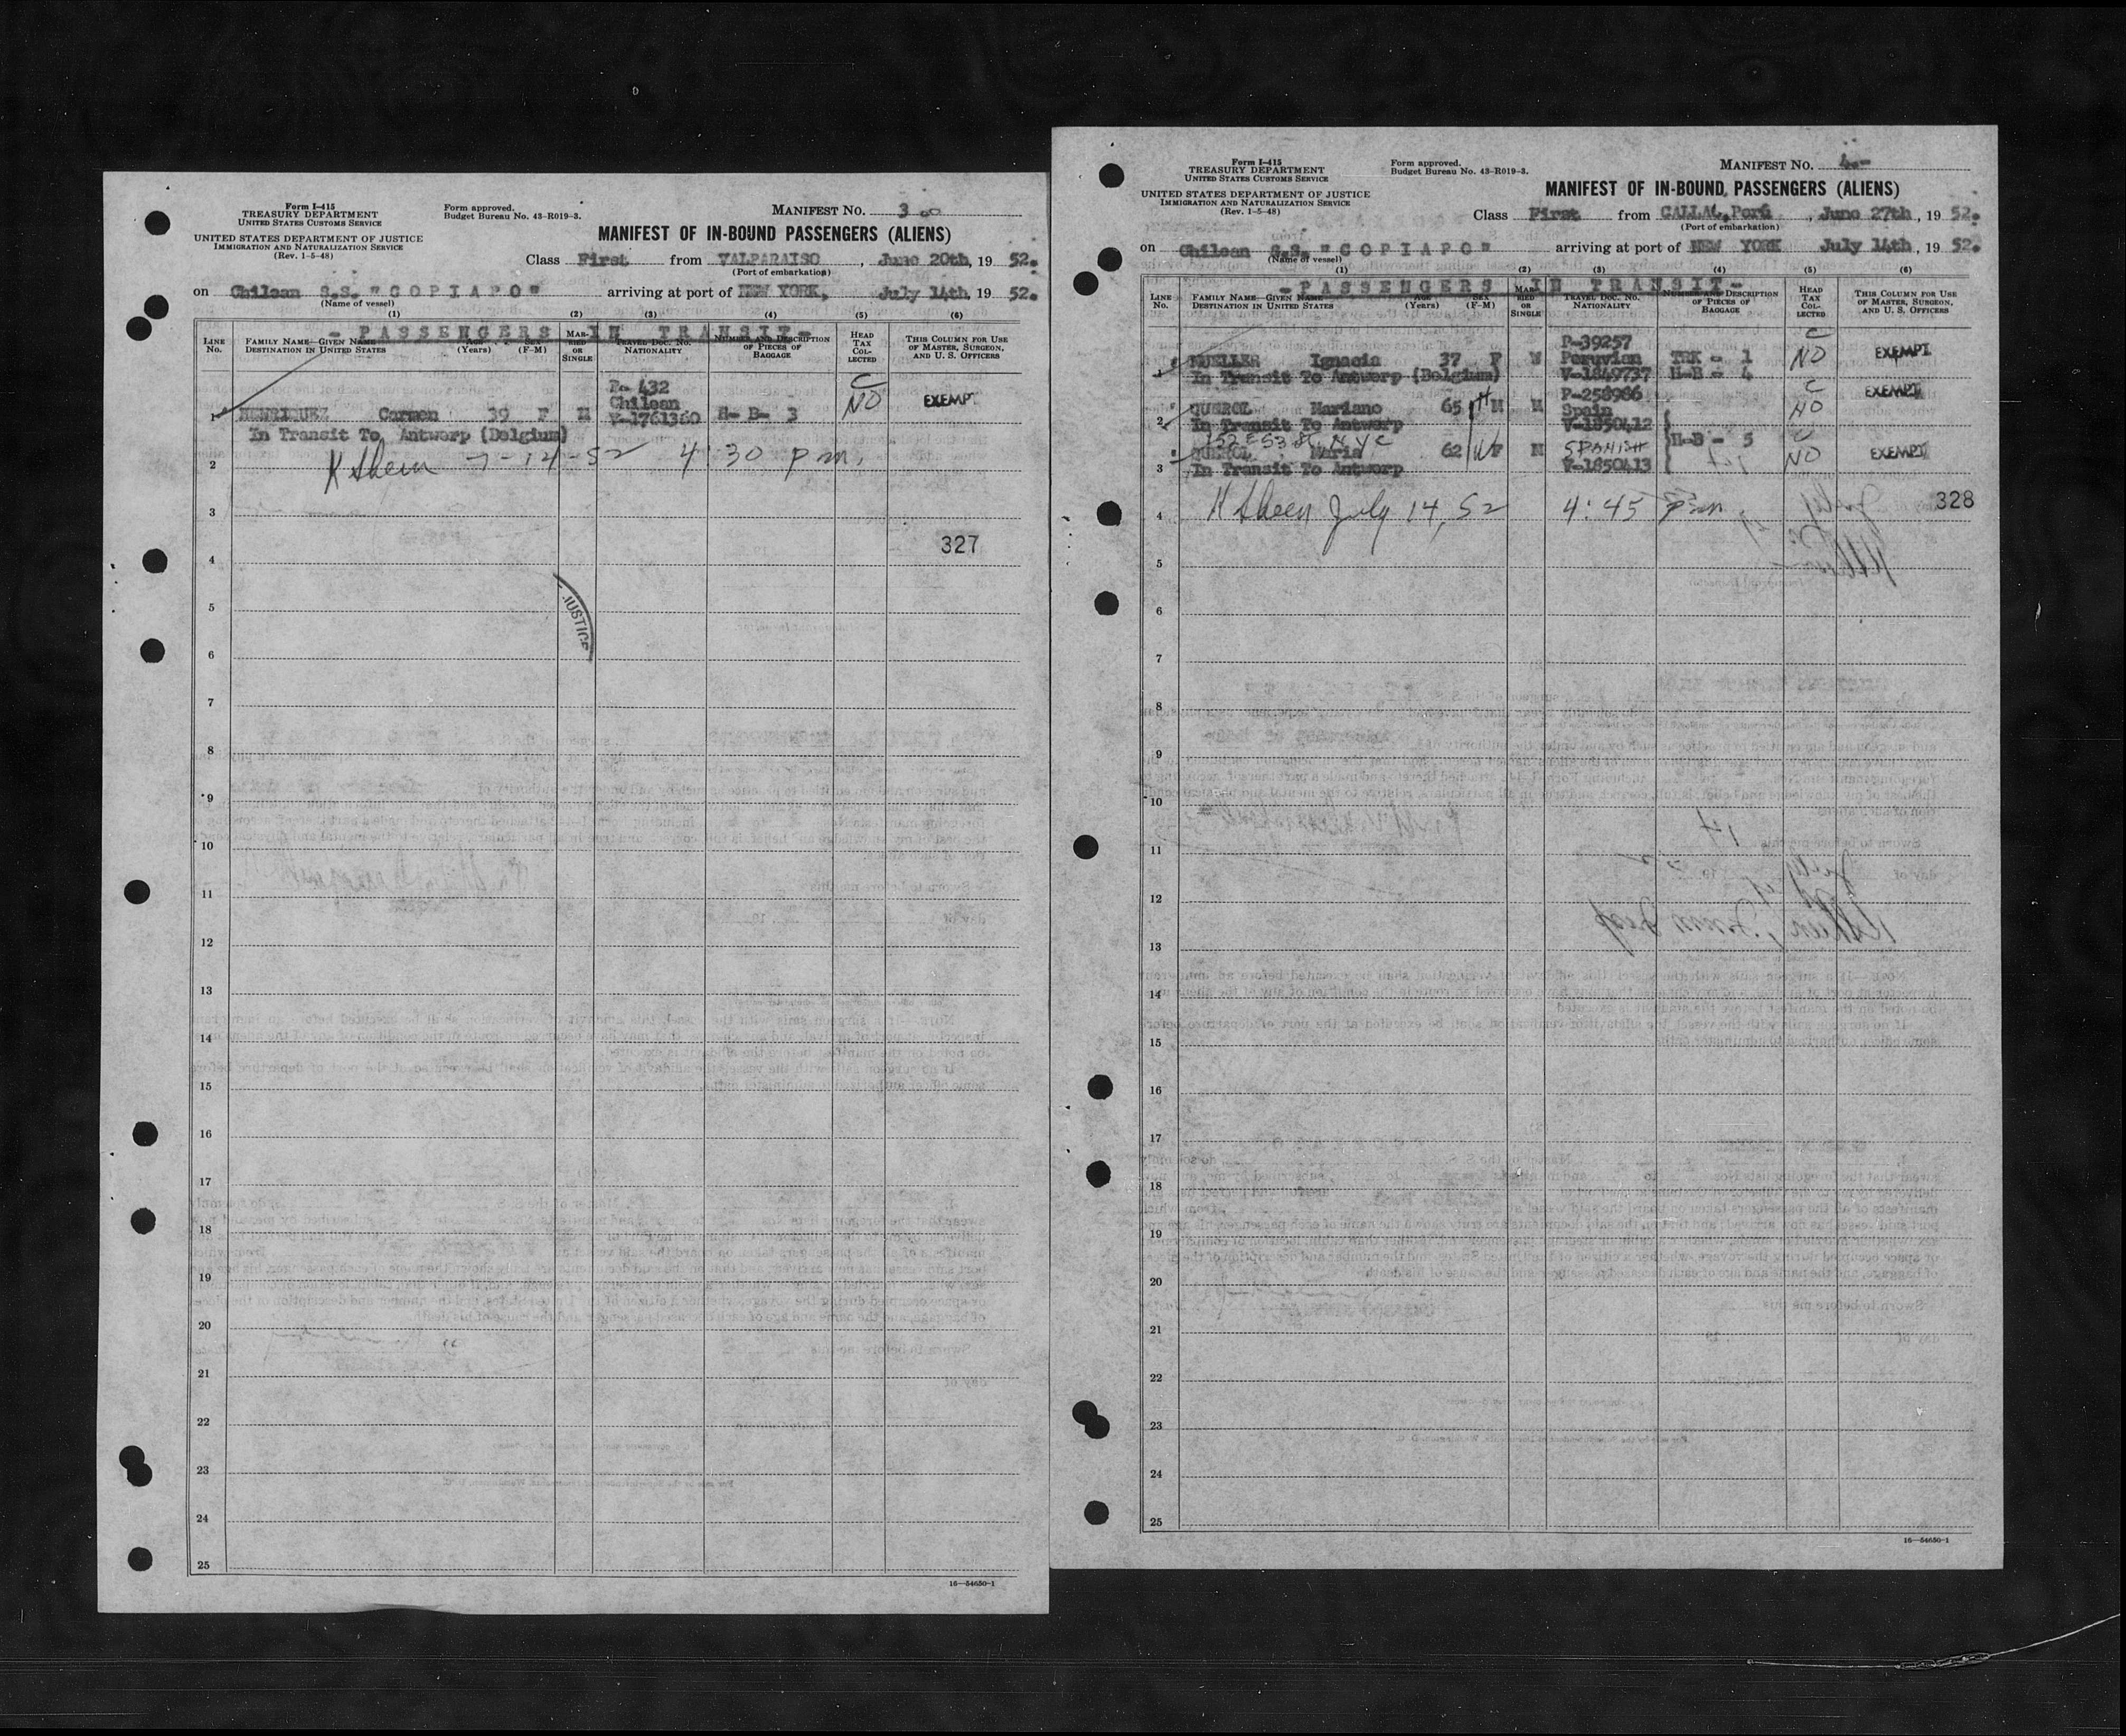 Form I-415
TREASURY DEPARTMENT
UNITED STATES CUSTOMS SERVICE
UNITED STATES DEPARTMENT OF JUSTICE
IMMIGRATION AND NATURALIZATION SERVICE
(Rev. 1-5-48)
Form approved.
Budget Bureau No. 43-R019-3.
MANIFEST No. 3
MANIFEST OF IN-BOUND PASSENGERS (ALIENS)
Class First from VALPARAISO, June 20th, 19 52.
(Port of embarkation)
on Chilean S.S. "COPIAPO" arriving at port of NEW YORK, July 14th, 19 52.
(Name of vessel)
(1) (2) (3) (4) (5) (6)
- PASSENGERS IN TRANSIT -
LINE No.
FAMILY NAME—GIVEN NAME
DESTINATION IN UNITED STATES
AGE (Years)
SEX (F-M)
MARRIED OR SINGLE
TRAVEL DOC. NO.
NATIONALITY
NUMBER AND DESCRIPTION OF PIECES OF BAGGAGE
HEAD TAX COLLECTED
THIS COLUMN FOR USE OF MASTER, SURGEON, AND U. S. OFFICERS
P- 432
Chilean
1 HENRIQUEZ Carmen 39 F M V-1761360 H- B- 3 C NO EXEMPT
In Transit To Antwerp (Belgium)
2 K Sheen 7-14-52 4:30 pm.
3
327
4
5
JUSTICE
6
7
8
9
10
11
12
13
14
15
16
17
18
19
20
21
22
23
24
25
16—54650-1
Form I-415
TREASURY DEPARTMENT
UNITED STATES CUSTOMS SERVICE
UNITED STATES DEPARTMENT OF JUSTICE
IMMIGRATION AND NATURALIZATION SERVICE
(Rev. 1-5-48)
Form approved.
Budget Bureau No. 43-R019-3.
MANIFEST No. 4
MANIFEST OF IN-BOUND PASSENGERS (ALIENS)
Class First from CALLAO, Perú, June 27th, 19 52.
(Port of embarkation)
on Chilean S.S. "COPIAPO" arriving at port of NEW YORK July 14th, 19 52.
(Name of vessel)
(1) (2) (3) (4) (5) (6)
- PASSENGERS IN TRANSIT -
LINE No.
FAMILY NAME—GIVEN NAME
DESTINATION IN UNITED STATES
AGE (Years)
SEX (F-M)
MARRIED OR SINGLE
TRAVEL DOC. NO.
NATIONALITY
NUMBER AND DESCRIPTION OF PIECES OF BAGGAGE
HEAD TAX COLLECTED
THIS COLUMN FOR USE OF MASTER, SURGEON, AND U. S. OFFICERS
P-39257 C
MUELLER Ignacia 37 F M Peruvian TRK - 1 NO EXEMPT
1 In Transit To Antwerp (Belgium) V-1849737 H-B - 4
P-258986 C EXEMPT
QUEROL Mariano 65 H M M Spain NO
2 In Transit To Antwerp V-1850412
152 E 53 St. N Y C H-B - 5 C
QUEROL Maria 62 W F M SPANISH NO EXEMPT
3 In Transit To Antwerp V-1850413
4 K Sheen July 14, 52 4:45 pm
328
5
6
7
8
9
10
11
12
13
14
15
16
17
18
19
20
21
22
23
24
25
16—54650-1